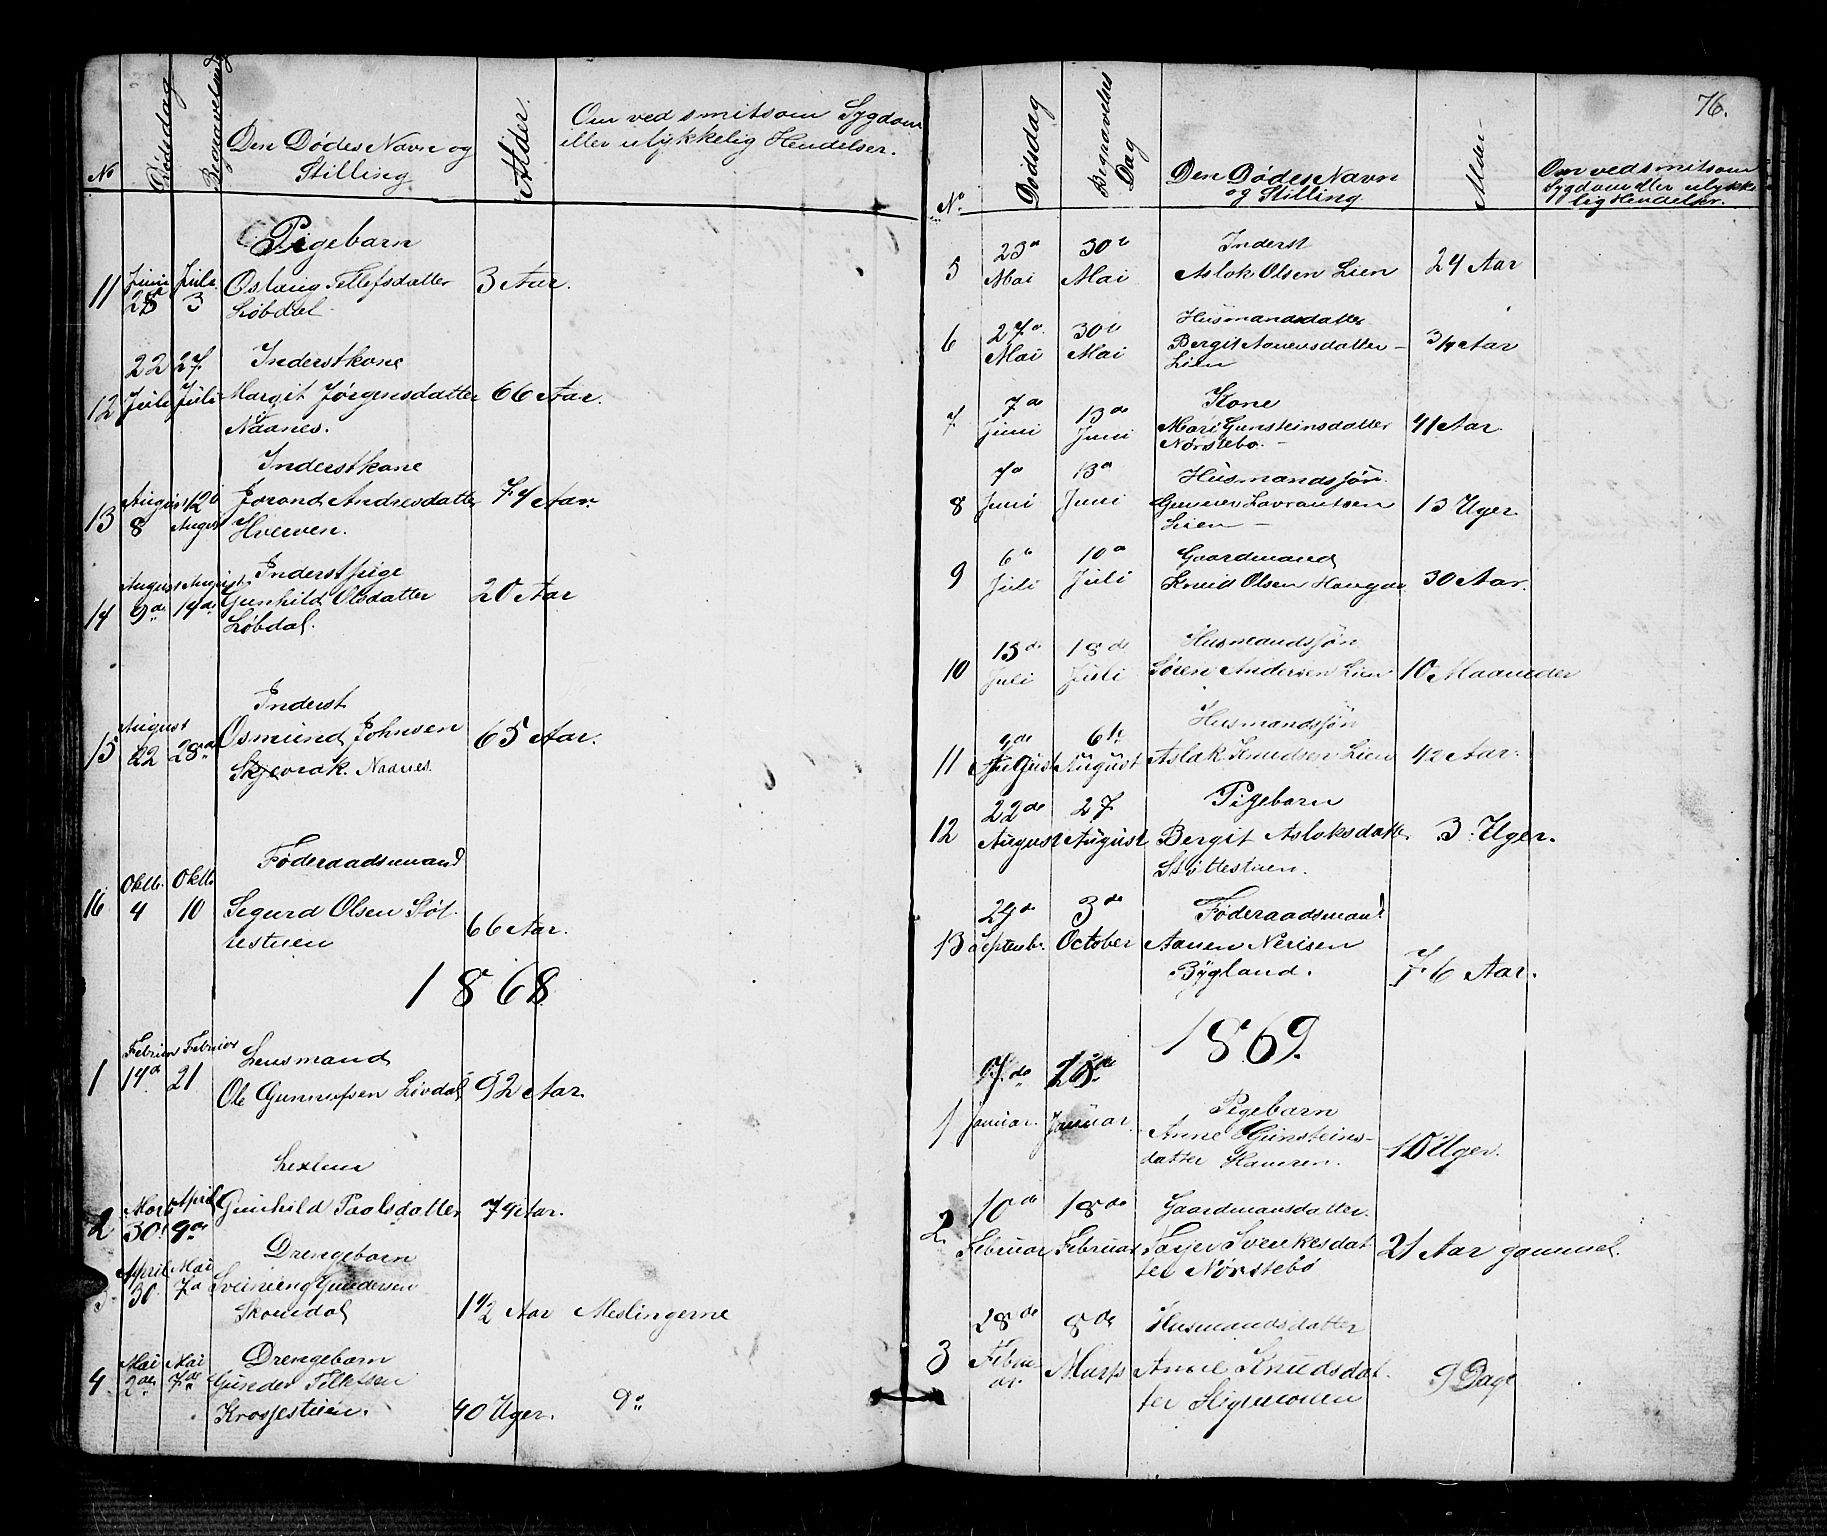 No
Dødsdag
Begravelsesdag
Den Dødes Navn og
Stilling
Alder.
Om ved smitsom Sygdom
eller ulykkelig Hendelser.
Pigebarn
11 Juni Juli Oslaug Tellefsdatter 3 Aar.
28 3 Løbdal
22 27 Inderstkone
12 Juli Juli Margit Jørgensdatter 66 Aar.
Naanes.
Inderstkone
13 August 12 Jorond Andresdatter 74 Aar.
8 August Hverven.
August August Inderstpige
14 9de 14de Gunhild Olsdatter 20 Aar
Løbdal.
Inderst
15 August 22 28de Osmund Johnsen 65 Aar.
Skjevrak. Naanes.
Føderaadsmand
16 Oktb. Oktb.
4 10 Sigurd Olsen Støt-
testuen 66 Aar.
1868
Februar Februar Lensmand
1 14de 21 Ole Gunnufsen Livdal 92 Aar.
2 Marts April Gunhild Paalsdatter 74 Aar.
30 9de
Drengebarn
April Mai
30 7de Gundersen
1 1/2 Aar Meslingerne
Mai Mai Drengebarn
4. 2de 7de Gunder
40 Uger. Do
76.
No.
Dødsdag
Begravelses
Dag
Den Dødes Navn
og Stilling
Alder
Om ved smitsom
Sygdom eller ulykke
lig Hendelser.
23de 30te Inderst
5 Mai Mai Aslak Olsen Lien 24 Aar
27de 30te Husmandsdatter
6 Mai Mai Bergit Aanensdatter 3/4 Aar
Lien
7de 13de Kone
7 Juni Juni Mari Gunsteinsdatter 41 Aar
Nørstebø.
7de 13de Husmandssøn
8 Juni Juni Gunner Lavrantsen 13 Uger
Lien
6te 10de Gaardmand
9 Juli Juli Knud Olsen 30 Aar.
13de 18de Husmandssøn
10 Juli Juli Søren Andersen Lien 10 Maaneder
6te Husmandssøn
11 August August Aslak Knudsen Lien 42 Aar.
22de 27 Pigebarn
12 August August Bergit Aslaksdatter 3 Uger.
Støttestuen.
24de 3de Føderaadsmand
13 Septembr. October Aanen Nerisen
Bygland. 76 Aar.
1869.
Pigebarn
1 Januar. Januar. Anne Gunsteins-
datter 10 Uger.
10de 18de Gaardmansdatter.
2. Februar Februar Tarjer Sveinkesdat
ter Nørstebø 21 Aar gammel.
28de 8de Husmandsdatter
3 Febru-
ar. Marts Anne Knudsdat-
ter 9 Dage